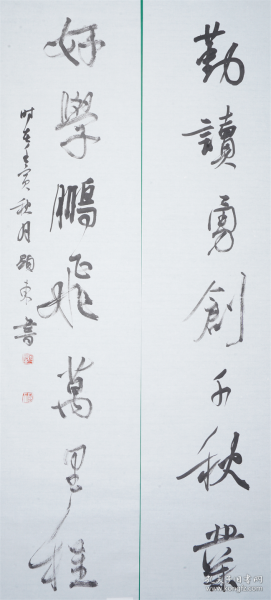 勤讀勇創千秋業
好學鵬飛萬里程
時在壬寅秋月
書